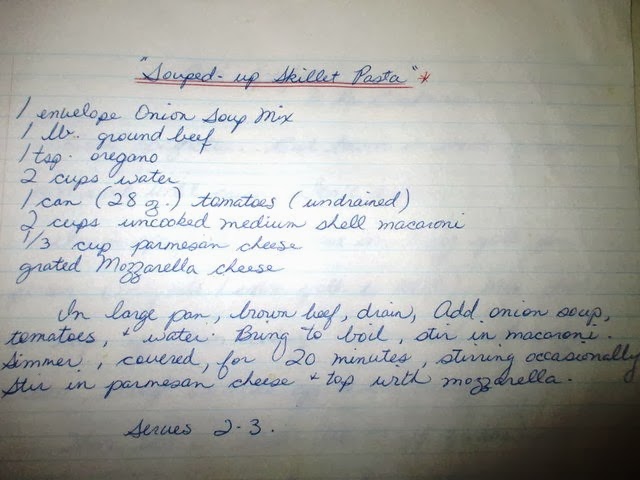 "Souped-up Skillet Pasta" *
1 envelope Onion Soup Mix
1 lb. ground beef
1 tsp. oregano
2 cups water
1 can (28 oz.) tomatoes (undrained)
2 cups uncooked medium shell macaroni
1/3 cup parmesan cheese
grated Mozzarella cheese
In large pan, brown beef, drain, Add onion soup,
tomatoes, + water. Bring to boil, stir in macaroni.
Simmer, covered, for 20 minutes, stirring occasionally
Stir in parmesan cheese + top with mozzarella.
Serves 2-3.